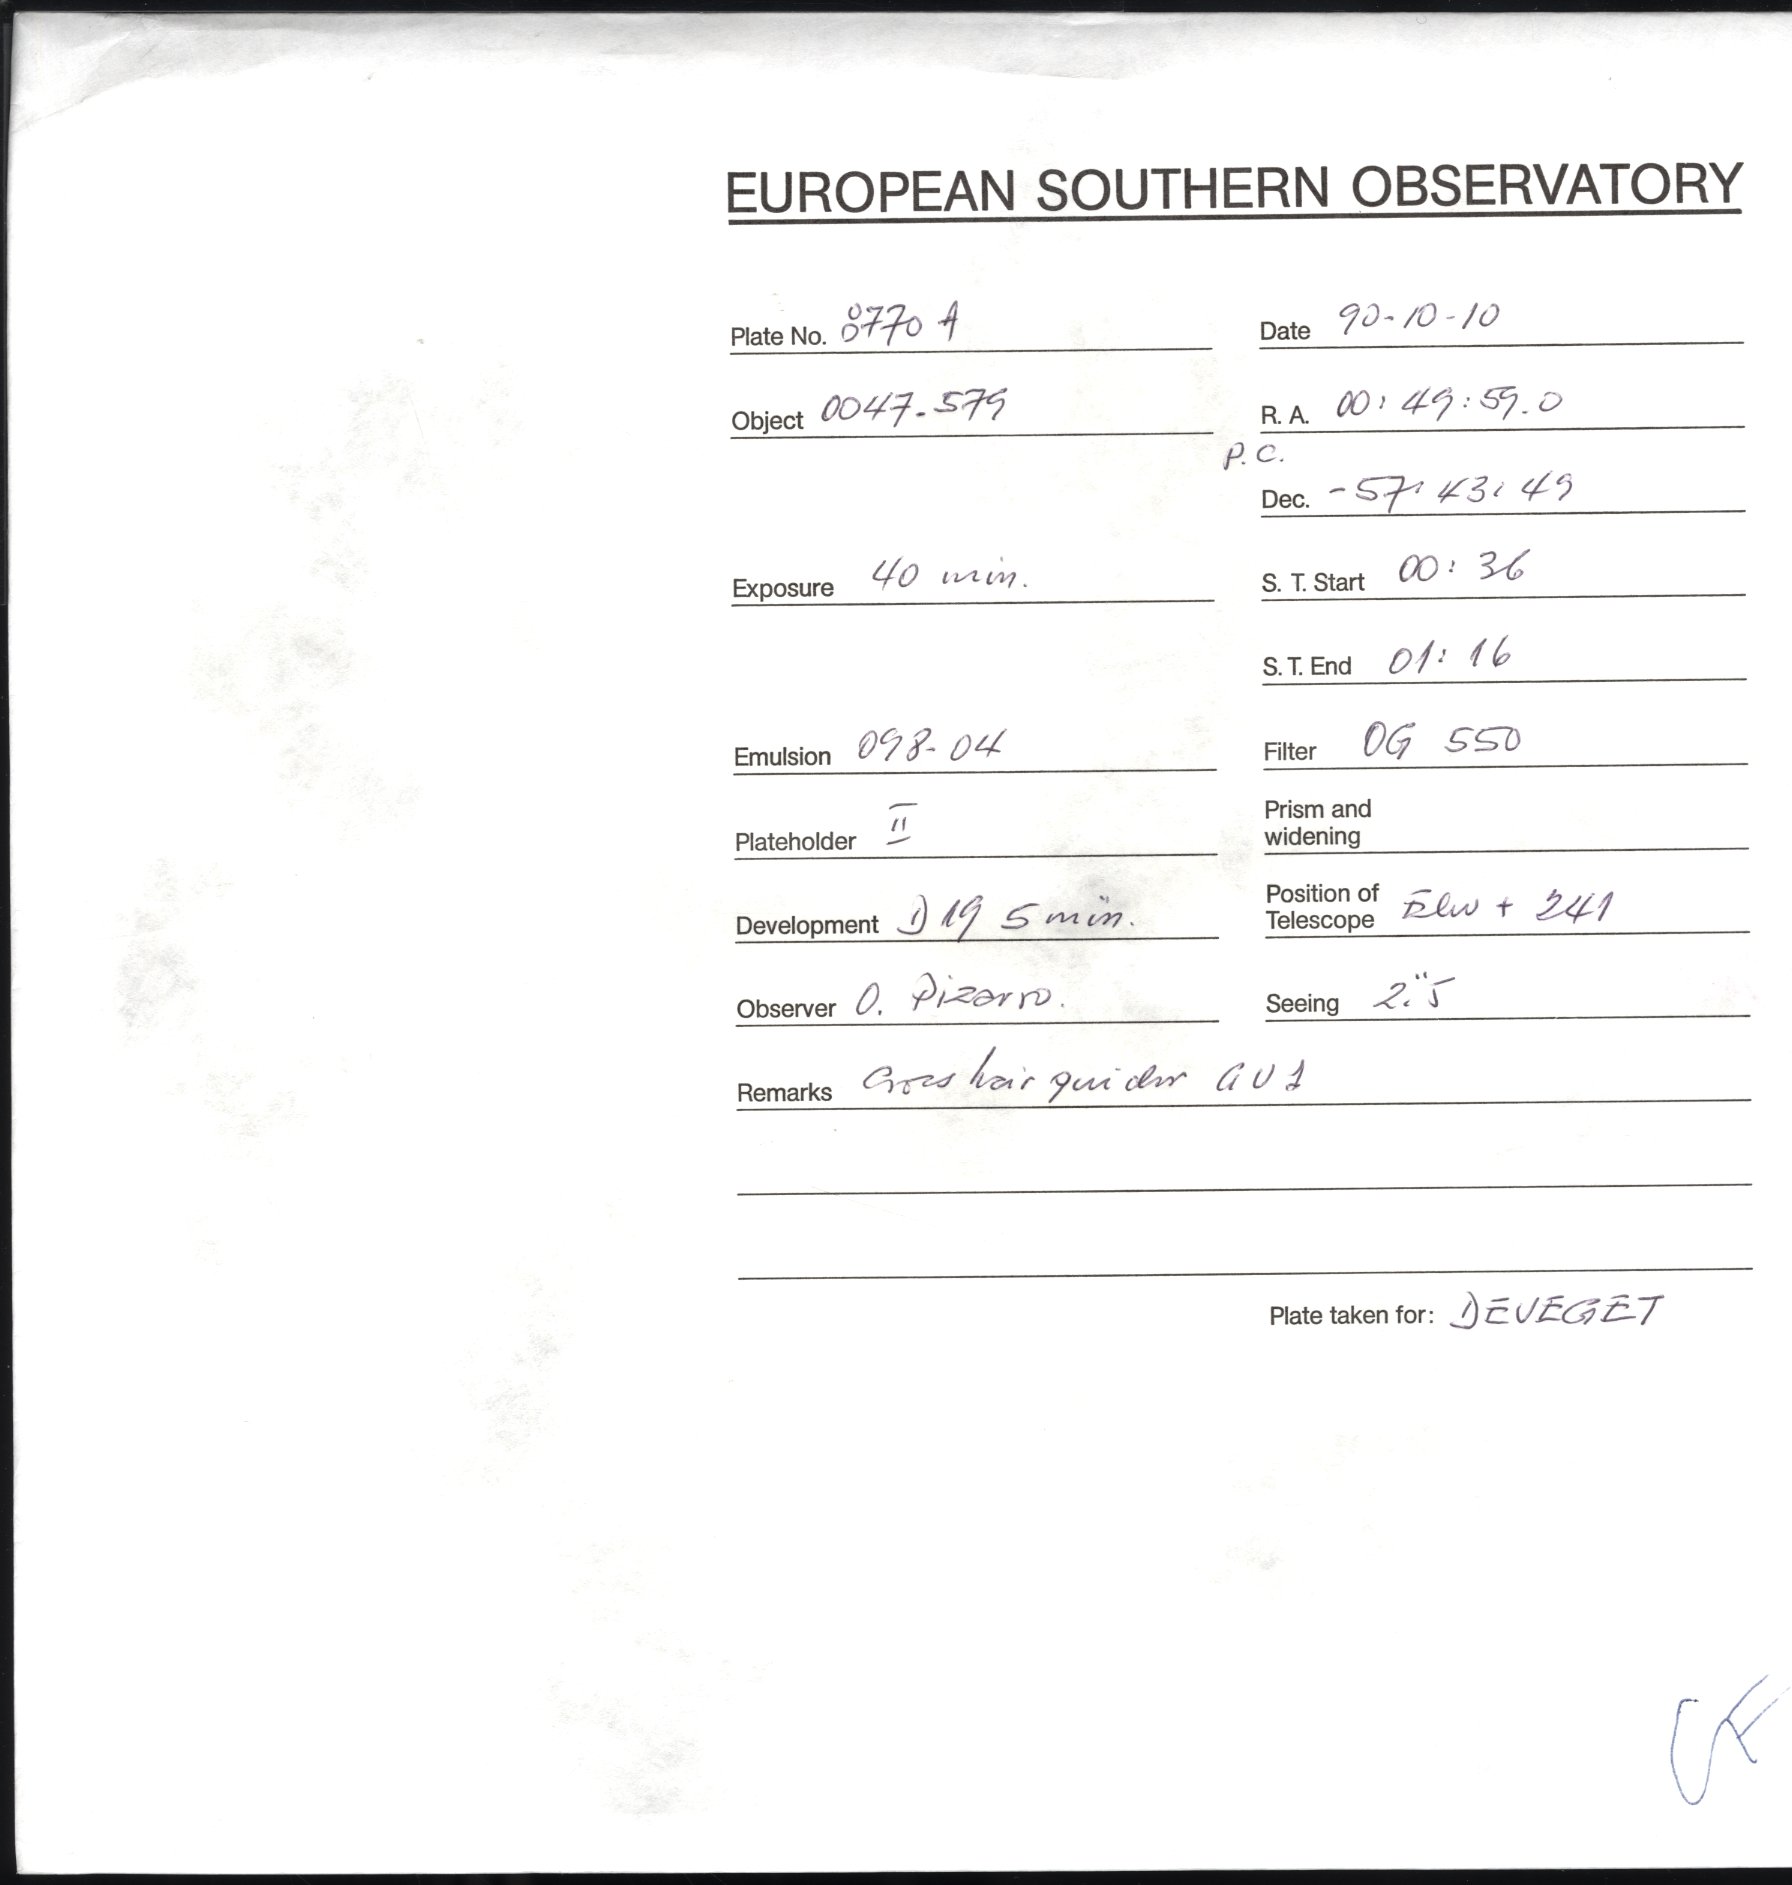 EUROPEAN SOUTHERN OBSERVATORY
Plate No. 8770 A Date 90-10-10
Object 0047-579 R. A. 00: 49: 59.0
P. C.
Dec. -57: 43: 49
Exposure 40 min. S. T. Start 00: 36
S. T. End 01: 16
Emulsion 098-04 Filter OG 550
Plateholder II Prism and
widening
Development D 19 5 min. Position of
Telescope + 241
Observer O. Pizarro. Seeing 2."5
Remarks Cross hair guider
Plate taken for: DEVEGET